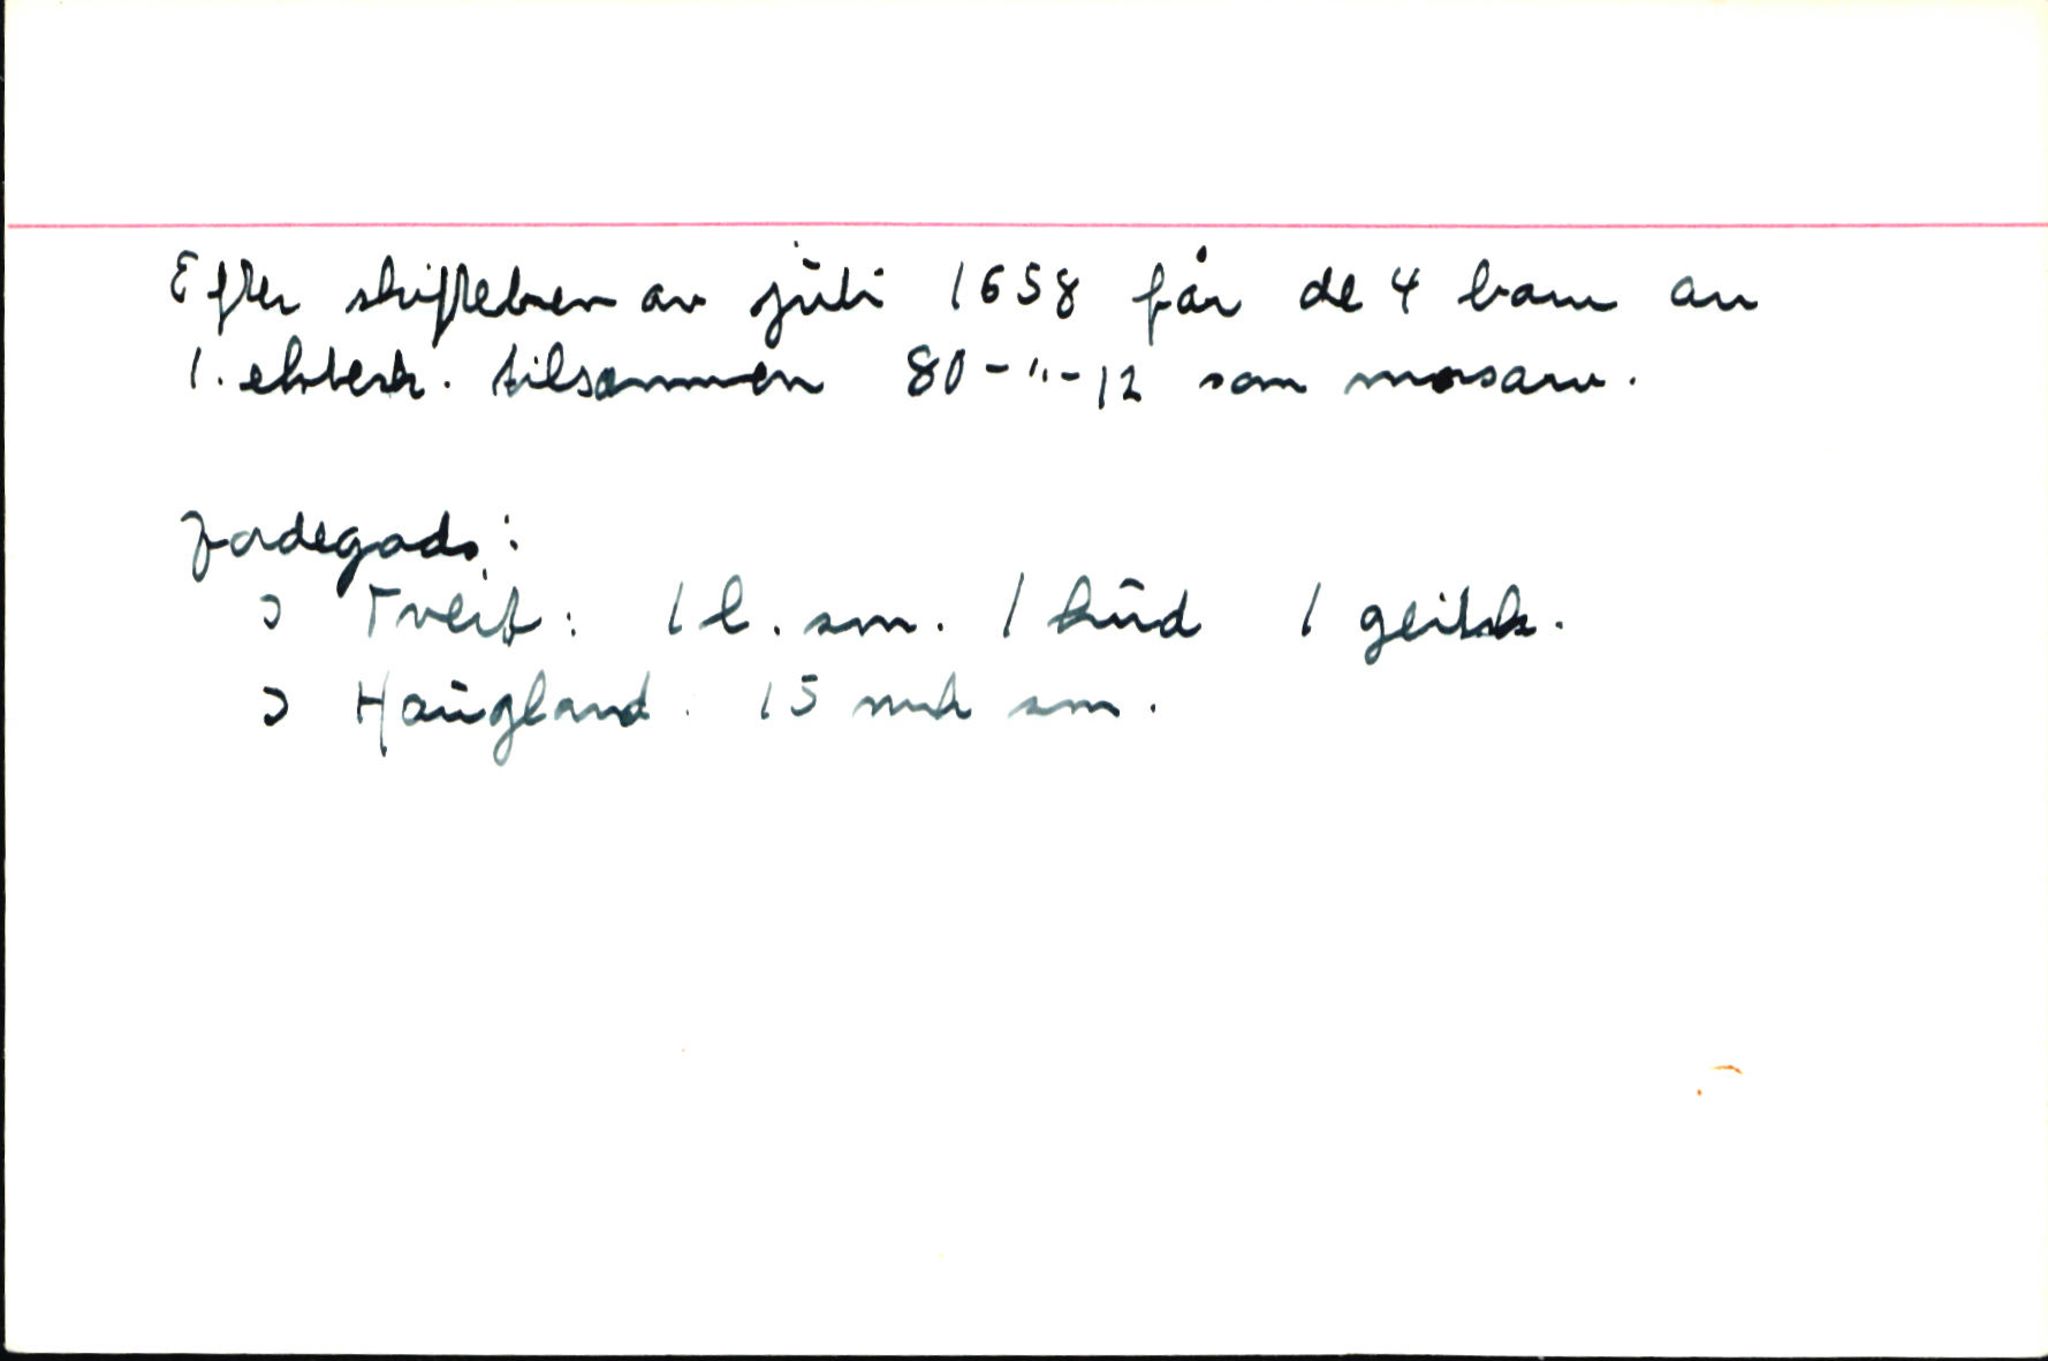 Efter skiftebrev av juli 1658 får de 4 barn av
1. ektesk. tilsammen 80-"-12 som morsarv.
Jordegods:
I Tveit: 1 l. sm. 1 hud 1 geitsk.
I Haugland: 15 mk sm.